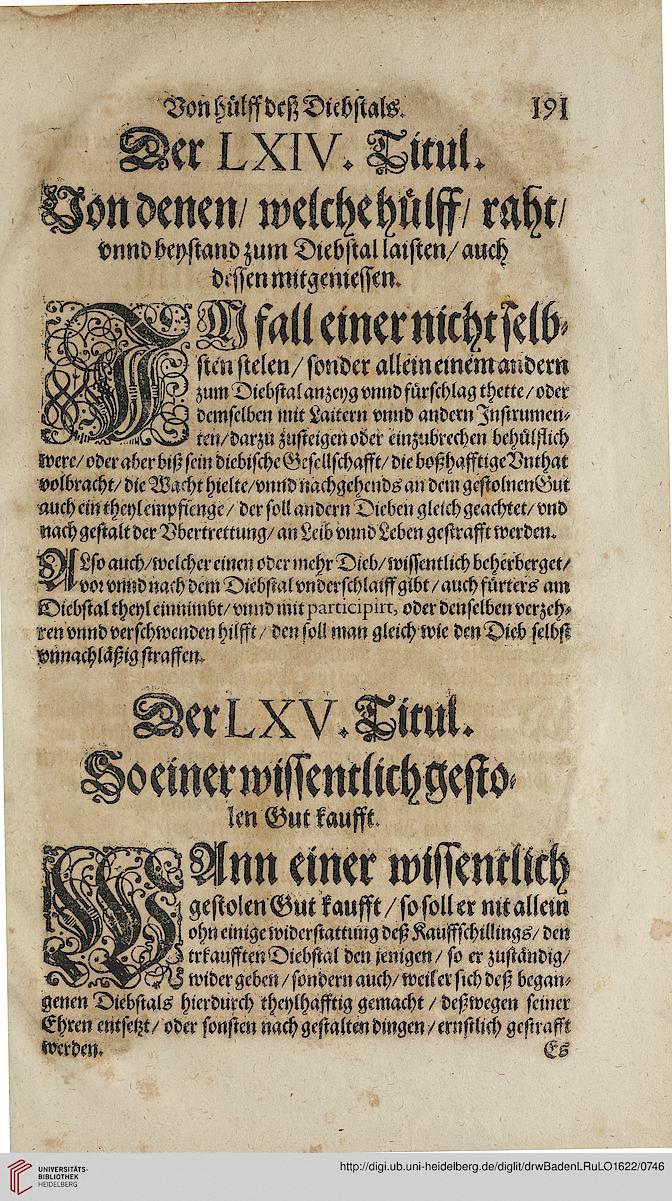 Von hülff deß Diebstals. 191
Der LXIV. Titul.
Von denen/ welche hülff/ raht/
vnnd beystand zum Diebstal laisten/ auch
dessen mitgeniessen.
IN fall einer nicht selb-
sten stelen/ sonder allein einem andern
zum Diebstal anzeyg vnnd fürschlag thette/ oder
demselben mit Laitern vnnd andern Instrumen-
ten/ darzů zusteigen oder einzubrechen behülflich
were/ oder aber biß sein diebische Gesellschafft/ die boßhafftige Vnthat
volbracht/ die Wacht hielte/ vnnd nachgehends an dem gestolnen Gut
auch ein theyl empfienge/ der soll andern Dieben gleich geachtet/ vnd
nach gestalt der Vbertrettung/ an Leib vnnd Leben gestrafft werden.
ALso auch/ welcher einen oder mehr Dieb/ wissentlich beherberget/
vor vnnd nach dem Diebstal vnderschlaiff gibt/ auch fürters am
Diebstal theyl einnimbt/ vnnd mit participirt, oder denselben verzeh-
ren vnnd verschwenden hilfft/ den soll man gleich wie den Dieb selbst
vnnachläßig straffen.
Der LXV. Titul.
So einer wissentlich gesto-
len Gut kaufft.
WAnn einer wissentlich
gestolen Gut kaufft/ so soll er nit allein
ohn einige widerstattung deß Kauffschillings/ den
erkaufften Diebstal den jenigen/ so er zuständig/
wider geben/ sondern auch/ weil er sich deß began-
genen Diebstals hierdurch theylhafftig gemacht/ deßwegen seiner
Ehren entsetzt/ oder sonsten nach gestalten dingen/ ernstlich gestrafft
werden. Es
UNIVERSITÄTS-
BIBLIOTHEK
HEIDELBERG
http://digi.ub.uni-heidelberg.de/diglit/drwBadenLRuLO1622/0746